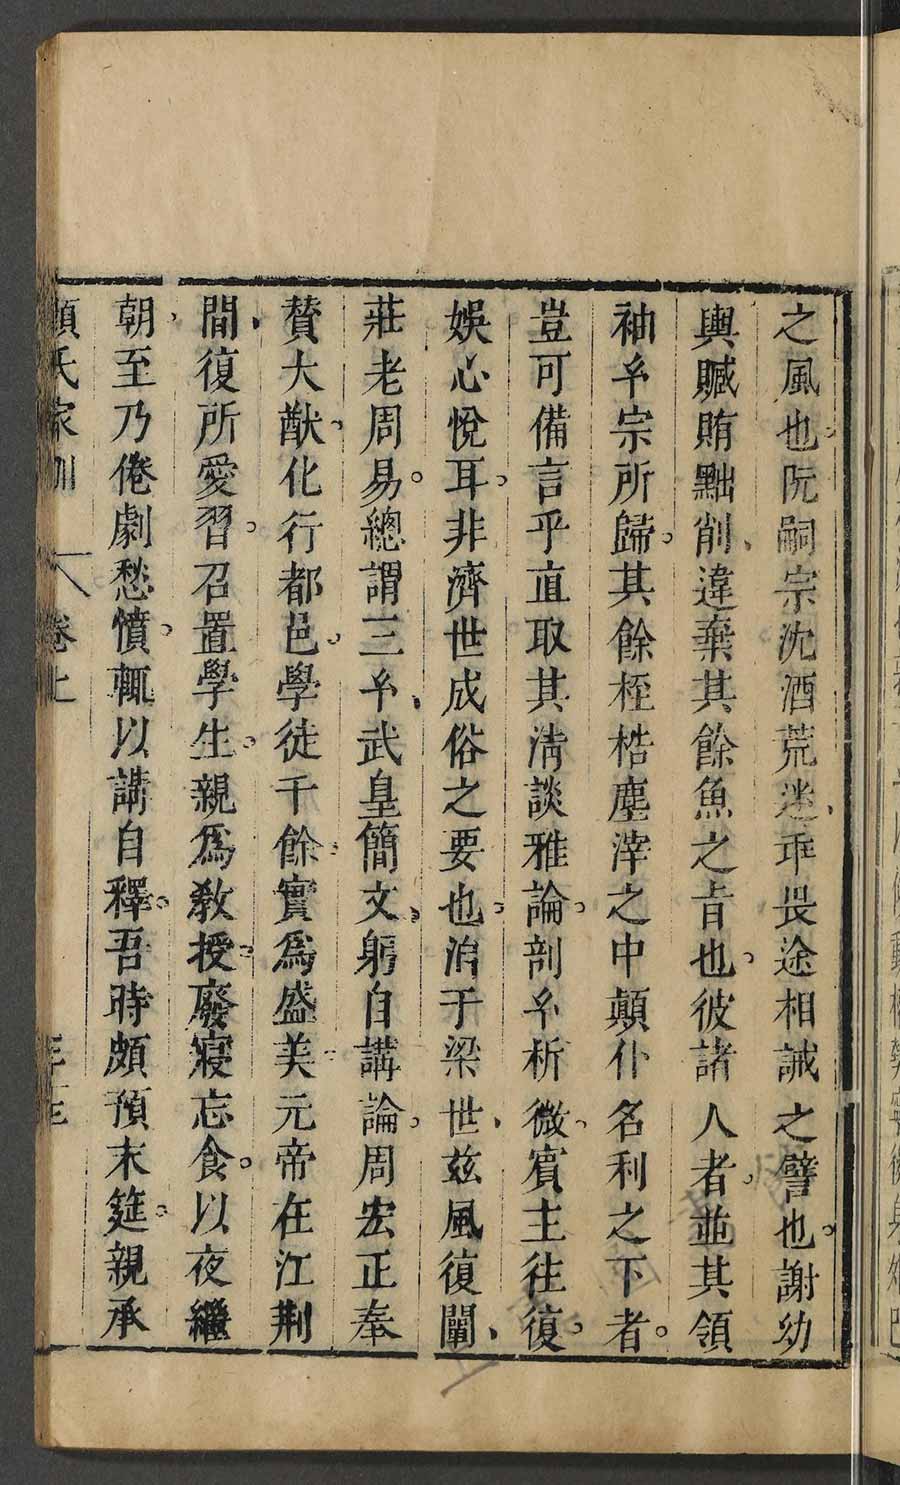 之風也阮嗣宗沈酒荒迷乖畏途相誡之譬也謝幼
輿贓賄黜削違棄其餘魚之旨也彼諸人者並其領
袖𤣥宗所歸其餘桎梏塵滓之中顛仆名利之下者
豈可備言乎直取其清談雅論剖𤣥析微賓主往復
娛心悅耳非濟世成俗之要也洎于梁世茲風復闡
莊老周易總謂三𤣥武皇簡文躬自講論周宏正奉
贊大猷化行都邑學徒千餘實爲盛美元帝在江荆
間復所愛習召置學生親爲教授廢寢忘食以夜繼
朝至乃倦劇愁憤輒以講自釋吾時頗預末筵親承
顏氏家訓
卷上